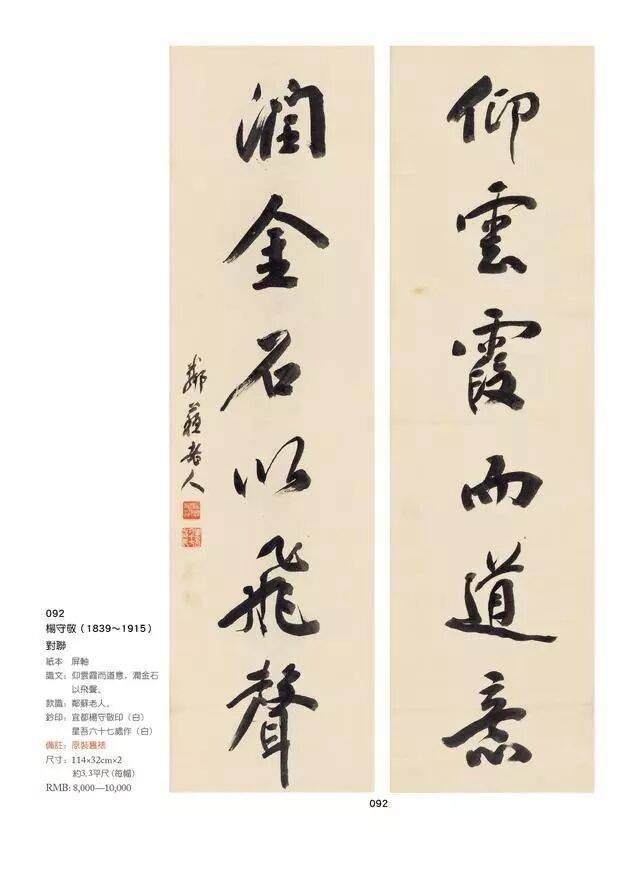 仰雲霞而道意
潤金石以飛聲
鄰蘓老人
092
楊守敬（1839～1915）
對聯
紙本 屏軸
識文：仰雲霞而道意，潤金石
以飛聲。
款識：鄰蘇老人。
鈐印：宜都楊守敬印（白）
星吾六十七歲作（白）
備註：原裝舊裱
尺寸：114×32cm×2
約3.3平尺(每幅)
RMB: 8,000—10,000
092